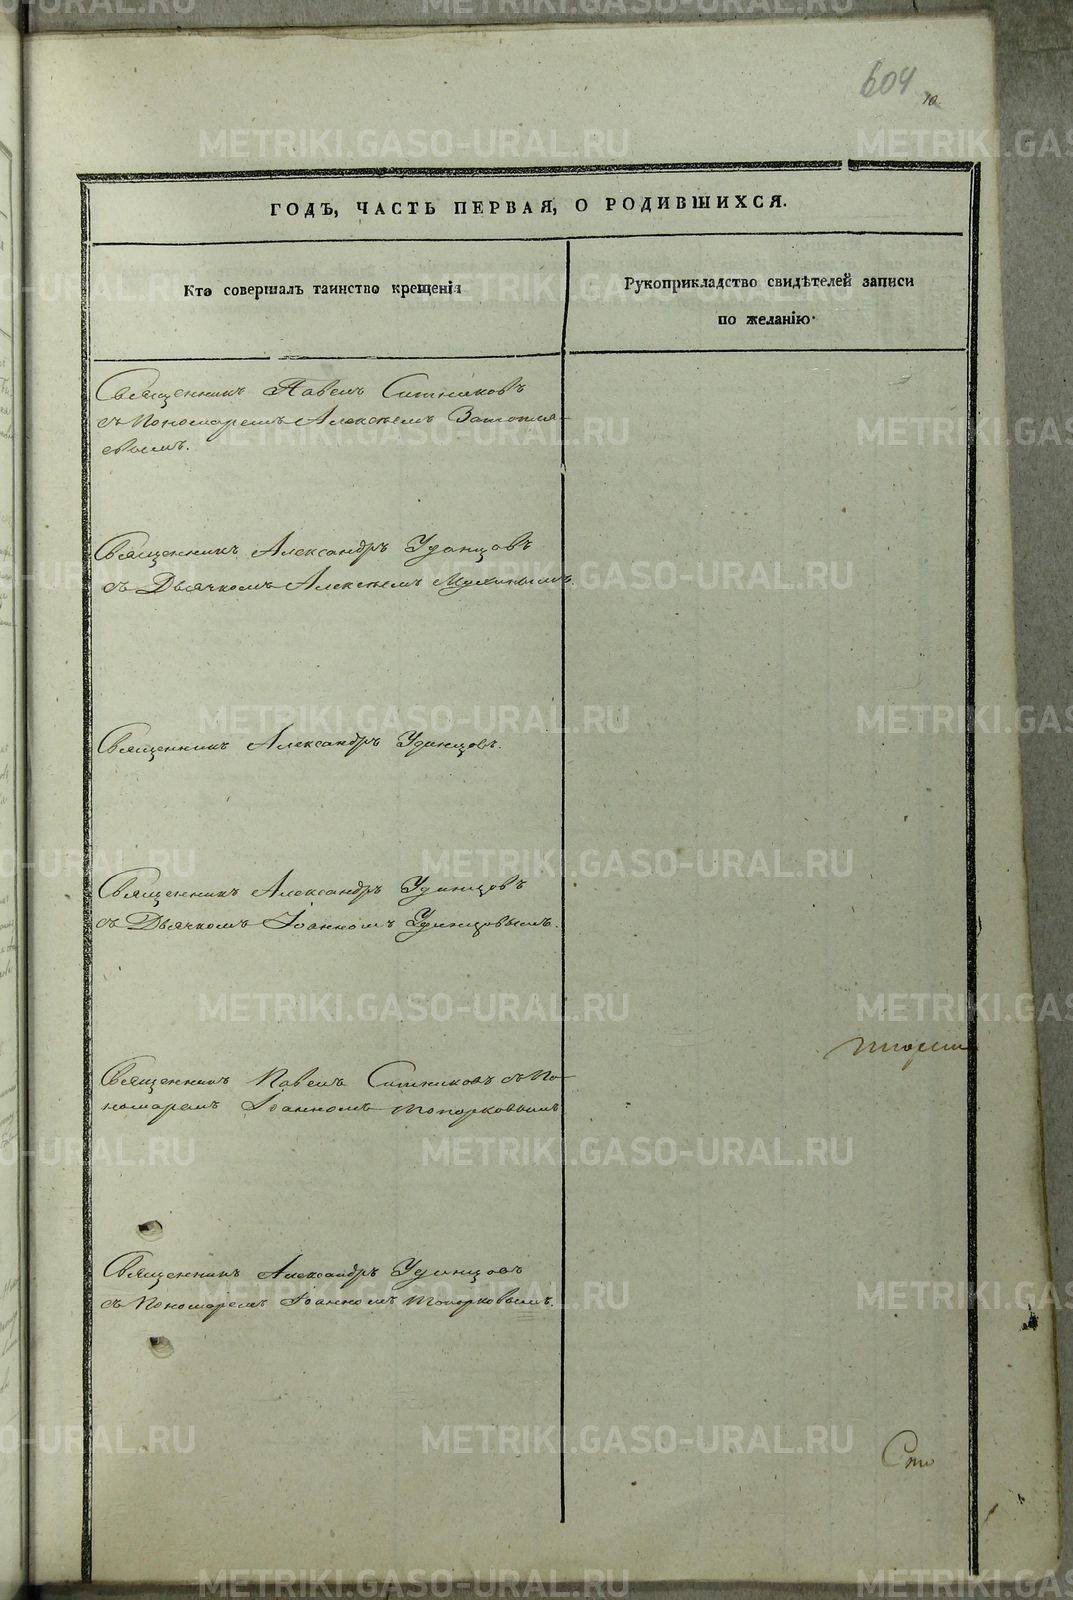 604
10.
ГОДЪ, ЧАСТЬ ПЕРВАЯ, О РОДИВШИХСЯ.
Кто совершалъ таинство крещенія
Рукоприкладство свидѣтелей записи
по желанію.
Священникъ Павелъ Ситниковъ
съ Пономаремъ Алексѣемъ Затопля-
евымъ.
Священникъ Александръ Удинцовъ
съ Дьячкомъ Алексѣемъ Мухинымъ.
Священникъ Александръ Удинцовъ.
Священникъ Александръ Удинцовъ
съ Дьячкомъ Іоанномъ Удинцовымъ.
Священникъ Павелъ Ситниковъ съ По-
номаремъ Іоанномъ Топорковымъ
Священникъ Александръ Удинцовъ
съ Пономаремъ Іоанномъ Топорковымъ.
METRIKI.GASO-URAL.RU